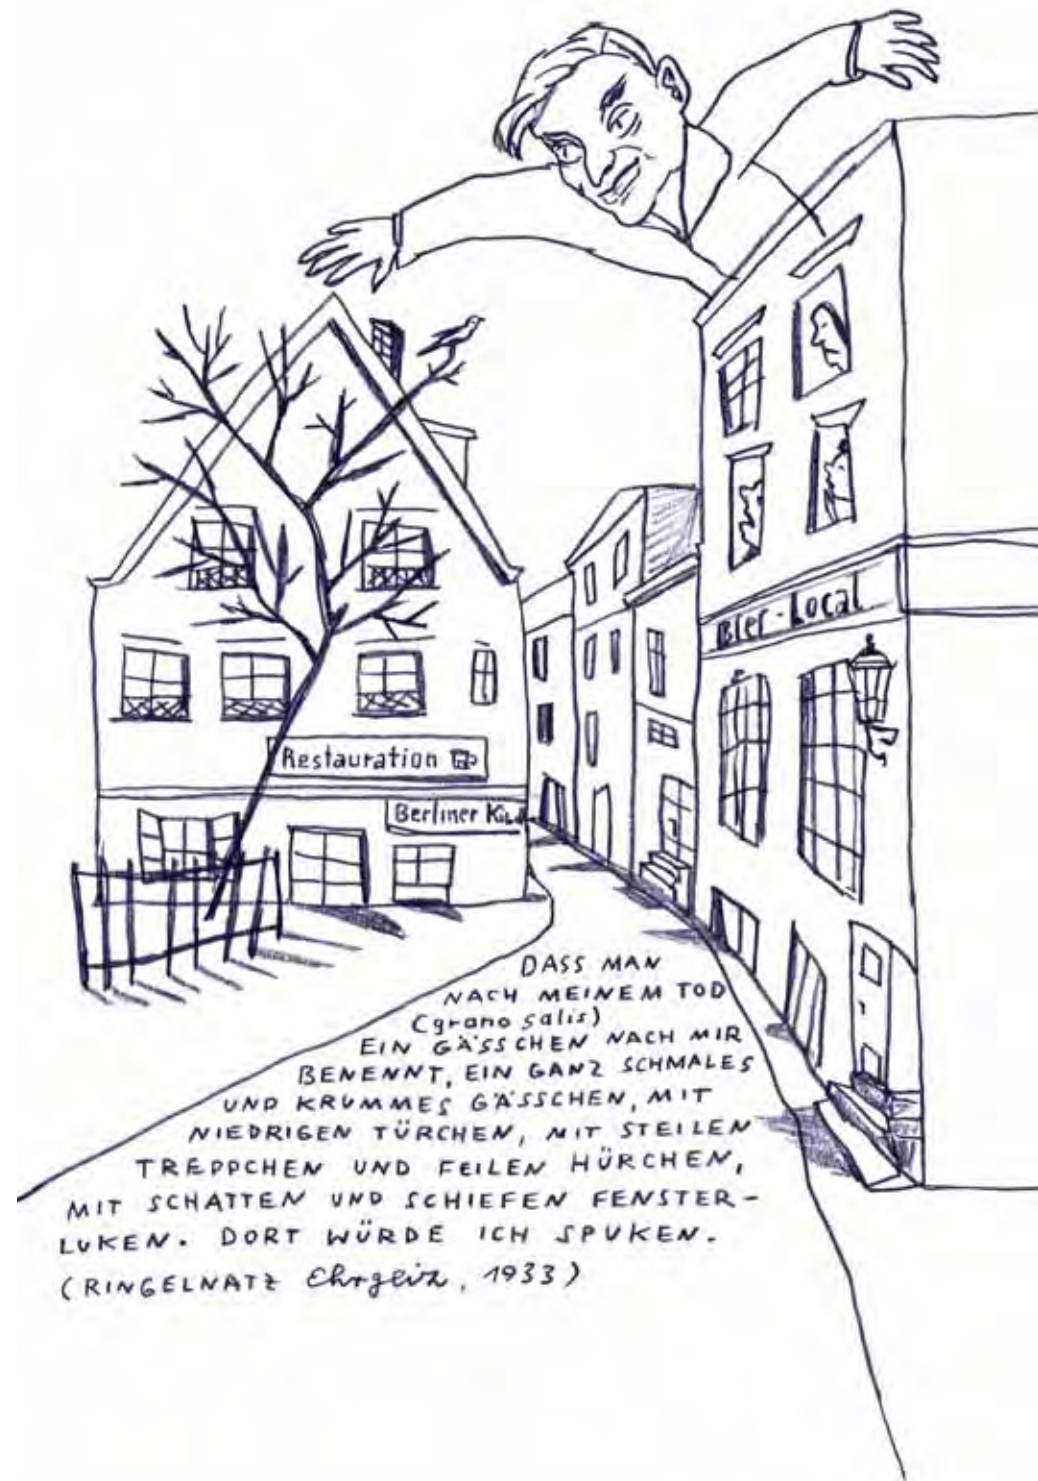 Bier-Local
Restauration
Berliner Kindl
DASS MAN
NACH MEINEM TOD
(grano salis)
EIN GÄSSCHEN NACH MIR
BENENNT, EIN GANZ SCHMALES
UND KRUMMES GÄSSCHEN, MIT
NIEDRIGEN TÜRCHEN, MIT STEILEN
TREPPCHEN UND FEILEN HÜRCHEN,
MIT SCHATTEN UND SCHIEFEN FENSTER-
LUKEN. DORT WÜRDE ICH SPUKEN.
(RINGELNATZ Ehrgeiz, 1933)